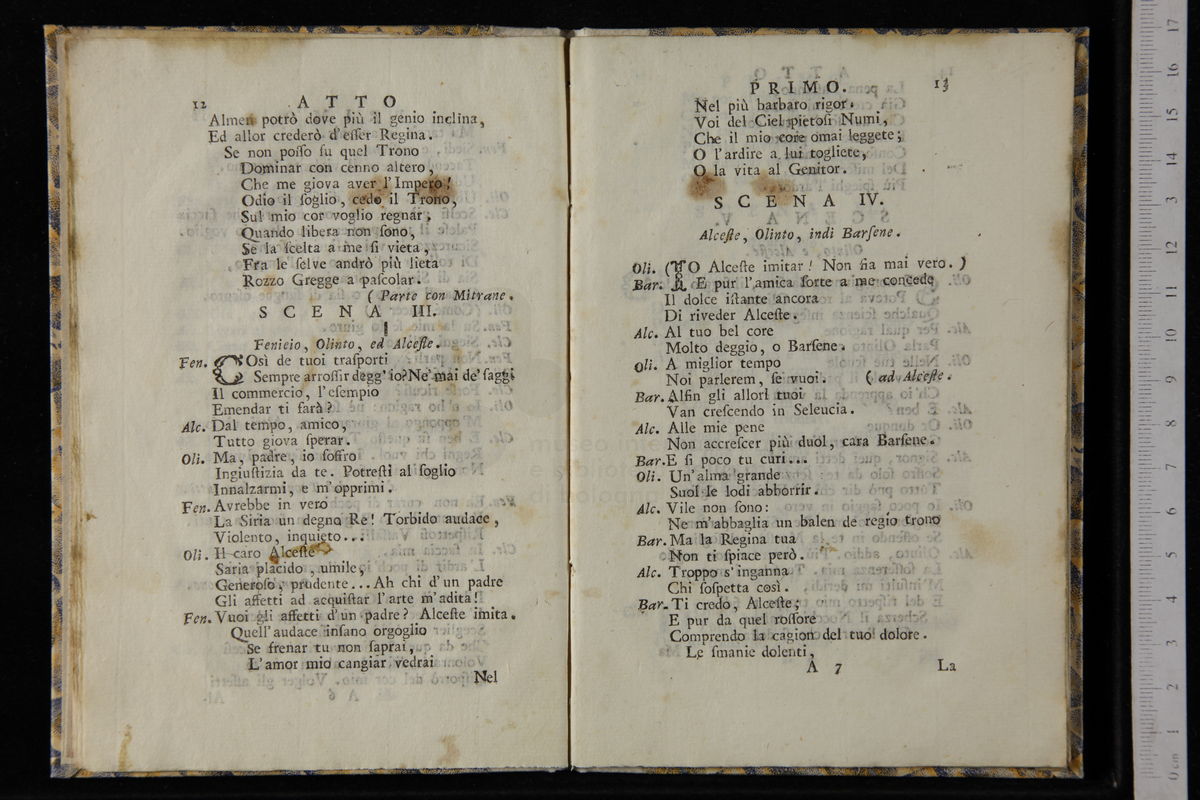 12 ATTO
Almen potrò dove più il genio inclina,
Ed allor crederò d'eſſer Regina.
Se non poſſo ſu quel Trono
Dominar con cenno altero,
Che me giova aver l'Impero!
Odio il ſoglio, cedo il Trono,
Sul mio cor voglio regnar.
Quando libera non ſono,
Se la ſcelta a me ſi vieta,
Fra le ſelve andrò più lieta
Rozzo Gregge a paſcolar.
(Parte con Mitrane.
SCENA III.
Fenicio, Olinto, ed Alceſte.
Fen. Così de tuoi traſporti
Sempre arroſſir degg' io? Ne' mai de' ſaggi
Il commercio, l'eſempio
Emendar ti farà?
Alc. Dal tempo, amico,
Tutto giova ſperar.
Oli. Ma, padre, io ſoffro
Ingiuſtizia da te. Potreſti al ſoglio
Innalzarmi, e m'opprimi.
Fen. Avrebbe in vero
La Siria un degno Re! Torbido audace,
Violento, inquieto...
Oli. Il caro Alceſte
Saria placido, umile,
Generoſo, prudente... Ah chi d'un padre
Gli affetti ad acquiſtar l'arte m'adita!
Fen. Vuoi gli affetti d'un padre? Alceſte imita.
Quell'audace inſano orgoglio
Se frenar tu non ſaprai,
L'amor mio cangiar vedrai
Nel
PRIMO. 13
Nel più barbaro rigor.
Voi del Ciel pietoſi Numi,
Che il mio core omai leggete;
O l'ardire a lui togliete,
O la vita al Genitor.
SCENA IV.
Alceſte, Olinto, indi Barſene.
Oli. (IO Alceſte imitar! Non ſia mai vero.)
Bar. E pur l'amica ſorte a me concede
Il dolce iſtante ancora
Di riveder Alceſte.
Alc. Al tuo bel core
Molto deggio, o Barſene.
Oli. A miglior tempo
Noi parlerem, ſe vuoi. (ad Alceſte.
Bar. Alfin gli allori tuoi
Van creſcendo in Seleucia.
Alc. Alle mie pene
Non accreſcer più duol, cara Barſene.
Bar. E ſi poco tu curi...
Oli. Un'alma grande
Suol le lodi abborrir.
Alc. Vile non ſono:
Ne m'abbaglia un balen de regio trono
Bar. Ma la Regina tua
Non ti ſpiace però.
Alc. Troppo s'inganna
Chi ſoſpetta così.
Bar. Ti credo, Alceſte;
E pur da quel roſſore
Comprendo la cagion del tuo dolore.
Le ſmanie dolenti,
A 7 La